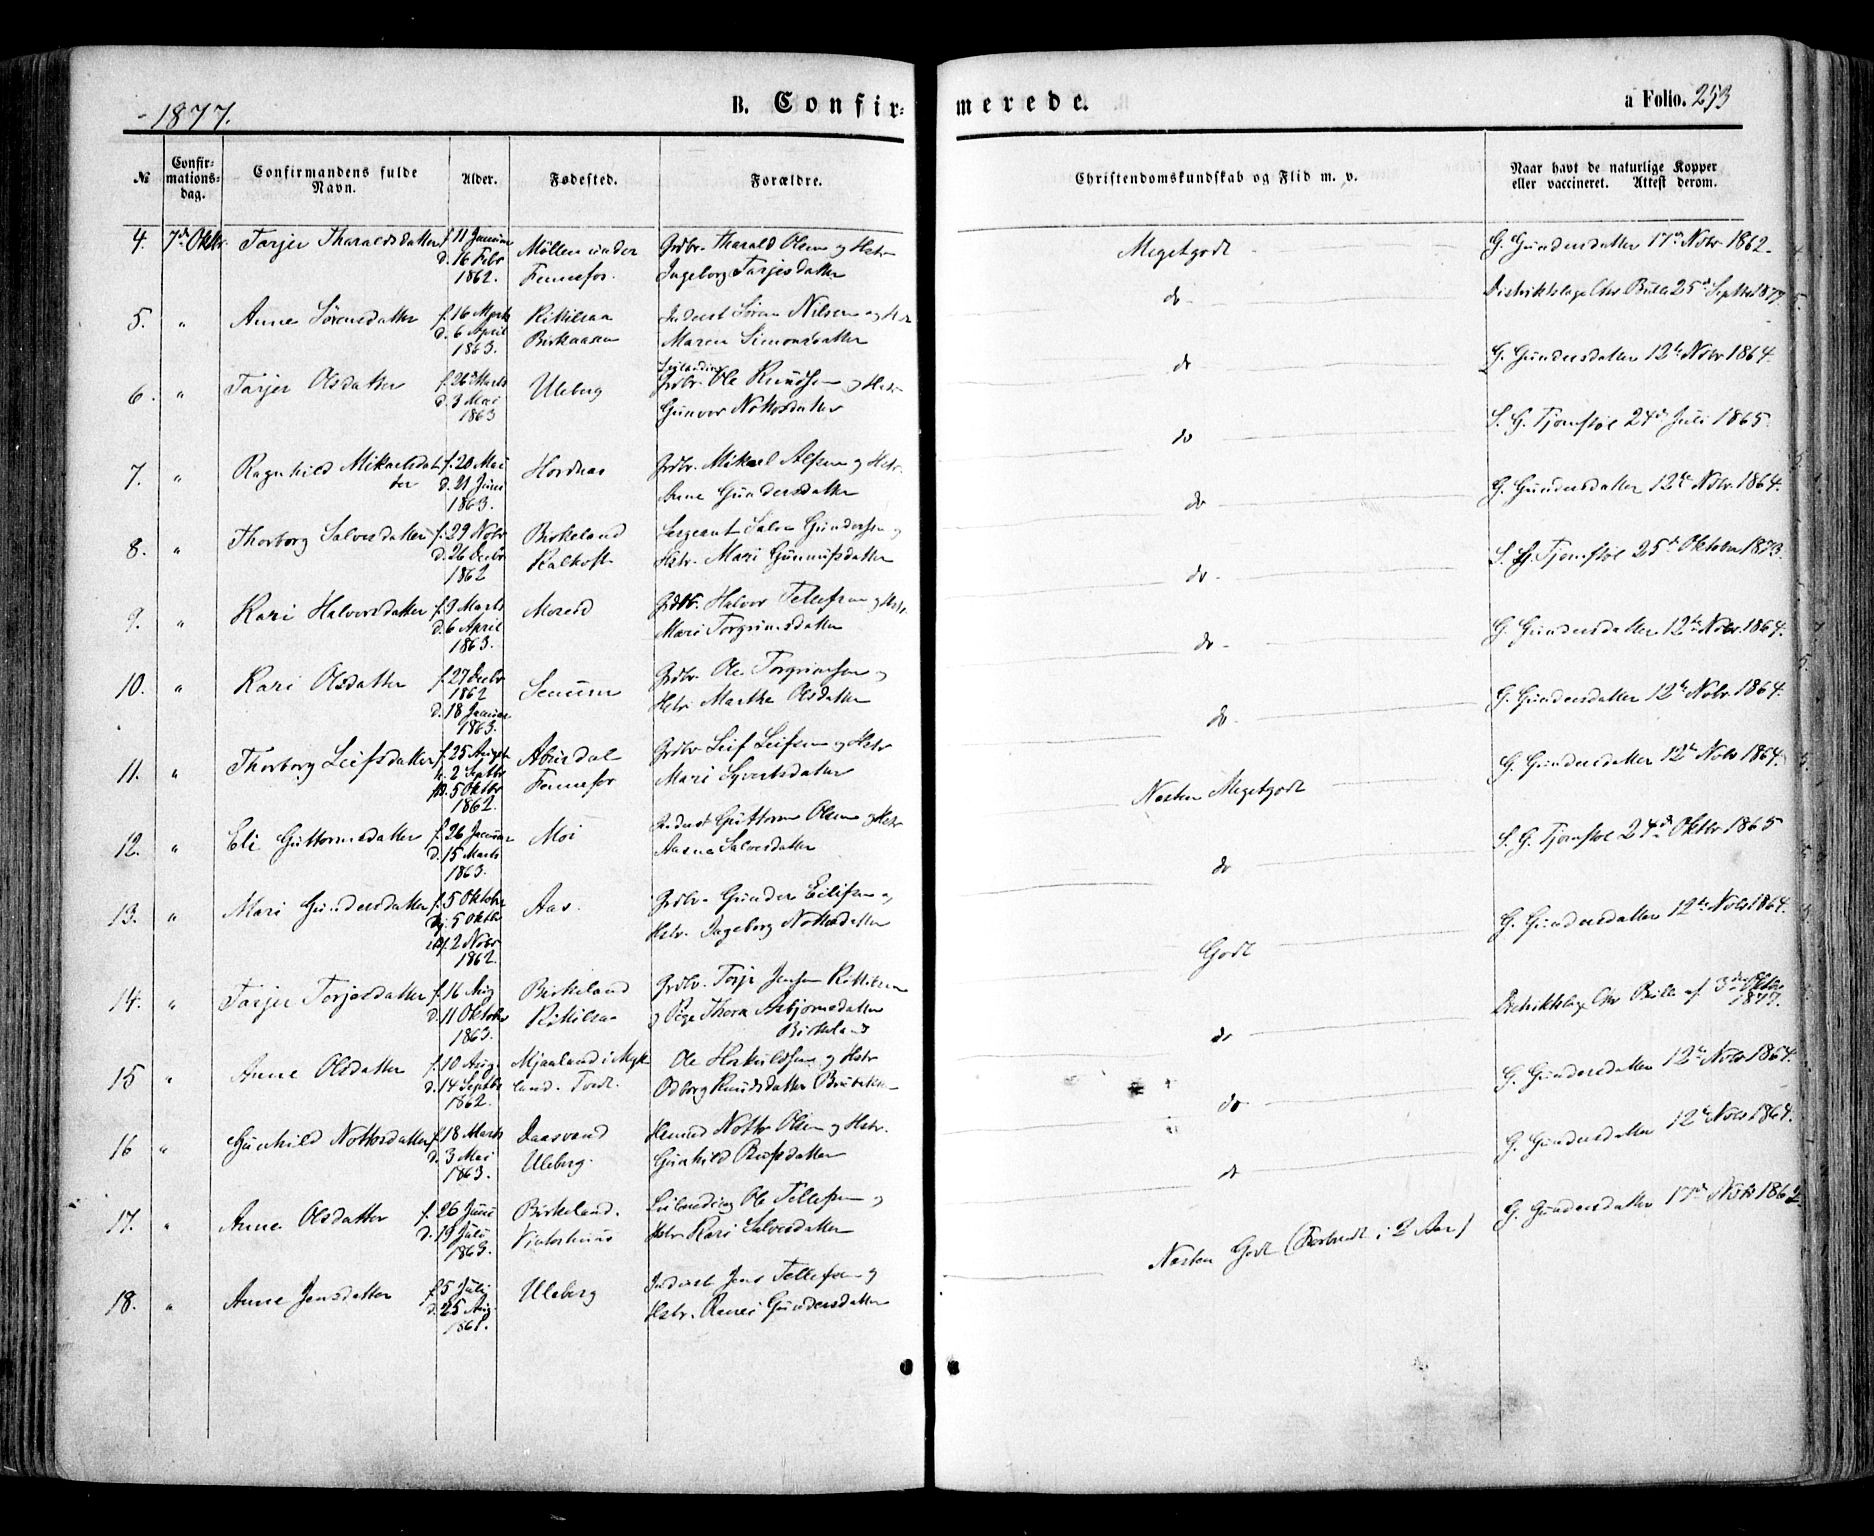 1877.
B. Confir-
merede.
a Folio. 253
№
Confir-
mations-
dag.
Confirmandens fulde
Navn.
Alder.
Fødested.
Forældre.
Christendomskundskab og Flid m. v.
Naar havt de naturlige Kopper
eller vaccineret. Attest derom.
4. 7de Oktbr. Tarjer Tharaldsdatter f. 11 Januar Møllen under Grdbr. Tharald Olsen og Hstr Megetgodt G. Gundersdatter 17de Novbr 1862.
d. 16 Febr Fennefos. Ingeborg Tarjesdatter
1862.
5. " Anne Sørensdatter f. 16 Marts Kittilsaa Inderst Søren Nilsen og Hstr do Distriktslæge Chr Bulle 25de Septbr 1877
d. 6 April Birkaasen Maren Simonsdatter
1863.
6. " Tarjer Olsdatter f. 26 Marts Uleberg Grdbr. Ole Knudsen og Hstr do G. Gundersdatter 12te Novbr 1864.
d. 3 Mai Gunvor Nottosdatter
1863
7. " Ragnhild Mikaelsdat- f. 20 Mai Hordnes Grdbr. Mikael Alfsen og Hstr. do S. G. Tjomstøl 24de Juli 1865
ter d. 21 Juni Anne Gundersdatter
1863.
8. " Thorborg Salvesdatter f. 29 Novbr Birkeland Sergeant Salve Gundersen og do G. Gundersdatter 12te Novbr. 1864.
d. 26 Decbr Kalkoft Hstr. Mari Gunnufsdatter
1862
9. " Kari Halvorsdatter f. 9 Marts Moseid Grdbr. Halvor Tellefsen og Hstr. do S. G. Tjomstøl 25de Oktober 1873.
d. 6 April Mari Torgrimsdatter
1863.
10. " Kari Olsdatter f. 27 Decbr Senum Grdbr. Ole Torgrimsen og do G. Gundersdatter 12te Novbr. 1864.
1862 Hstr Marthe Olsdatter
d. 18 Januar
1863.
11. " Thorborg Leifsdatter f. 25 August Abusdal Grdbr Leif Leifsen og Hstr do G. Gundersdatter 12te Novbr 1864.
2 Septbr Fennefos Mari Syvertsdatter
5 Oktbr
1862.
12. " Eli Guttormsdatter f. 26 Januar Moi Inderst Guttorm Olsen og Hstr Nesten Megetgodt G. Gundersdatter 12te Novbr 1864.
d. 15 Marts Aasne Salvesdatter
1863.
13. " Mari Gundersdatter f. 5 Oktober Aas. Grdbr. Gunder Eilifsen og do S. G. Tjomstøl 24de Oktbr 1865
5 Oktbr Hstr. Ingeborg Nottosdatter
2 Novbr
1862.
14. " Tarjer Torjersdatter f. 16 Aug Birkeland Grdbr. Torje Jensen Kittilsaa Godt G. Gundersdatter 12te Novbr 1864.
d. 11 Oktober Kittilsaa og Pige Thora Asbjørnsdatter
1863. Birkeland
15 " Anne Olsdatter f. 10 Aug. Mjaaland i Myk Ole Hoskuldsen og Hstr do Distriktslæge Chr Bulle af 3die Oktbr
1877.
d. 14 Septbr land. Tordt. Odborg Knudsdatter
1862.
16 " Gunhild Nottosdatter f. 18 Marts Daasvand Notto Olsen og Hstr. do G. Gundersdatter 12te Novbr 1864.
d. 3 Mai Uleberg. Gunhild
1863.
17. " Anne Olsdatter f. 26 Juni Birkeland. Ole Tellefsen og do G. Gundersdatter 12te Novbr 1864.
d. 19 Juli Hstr. Kari Salvesdatter
1863.
18. " Anne Jensdatter f. 5 Juli Uleberg Inderst Jens Tellefsen og Nesten Godt (Forbudt i 2 Aar) G. Gundersdatter 17de Novbr 1862.
d. 25 Aug Hstr. Gundersdatter
1861.